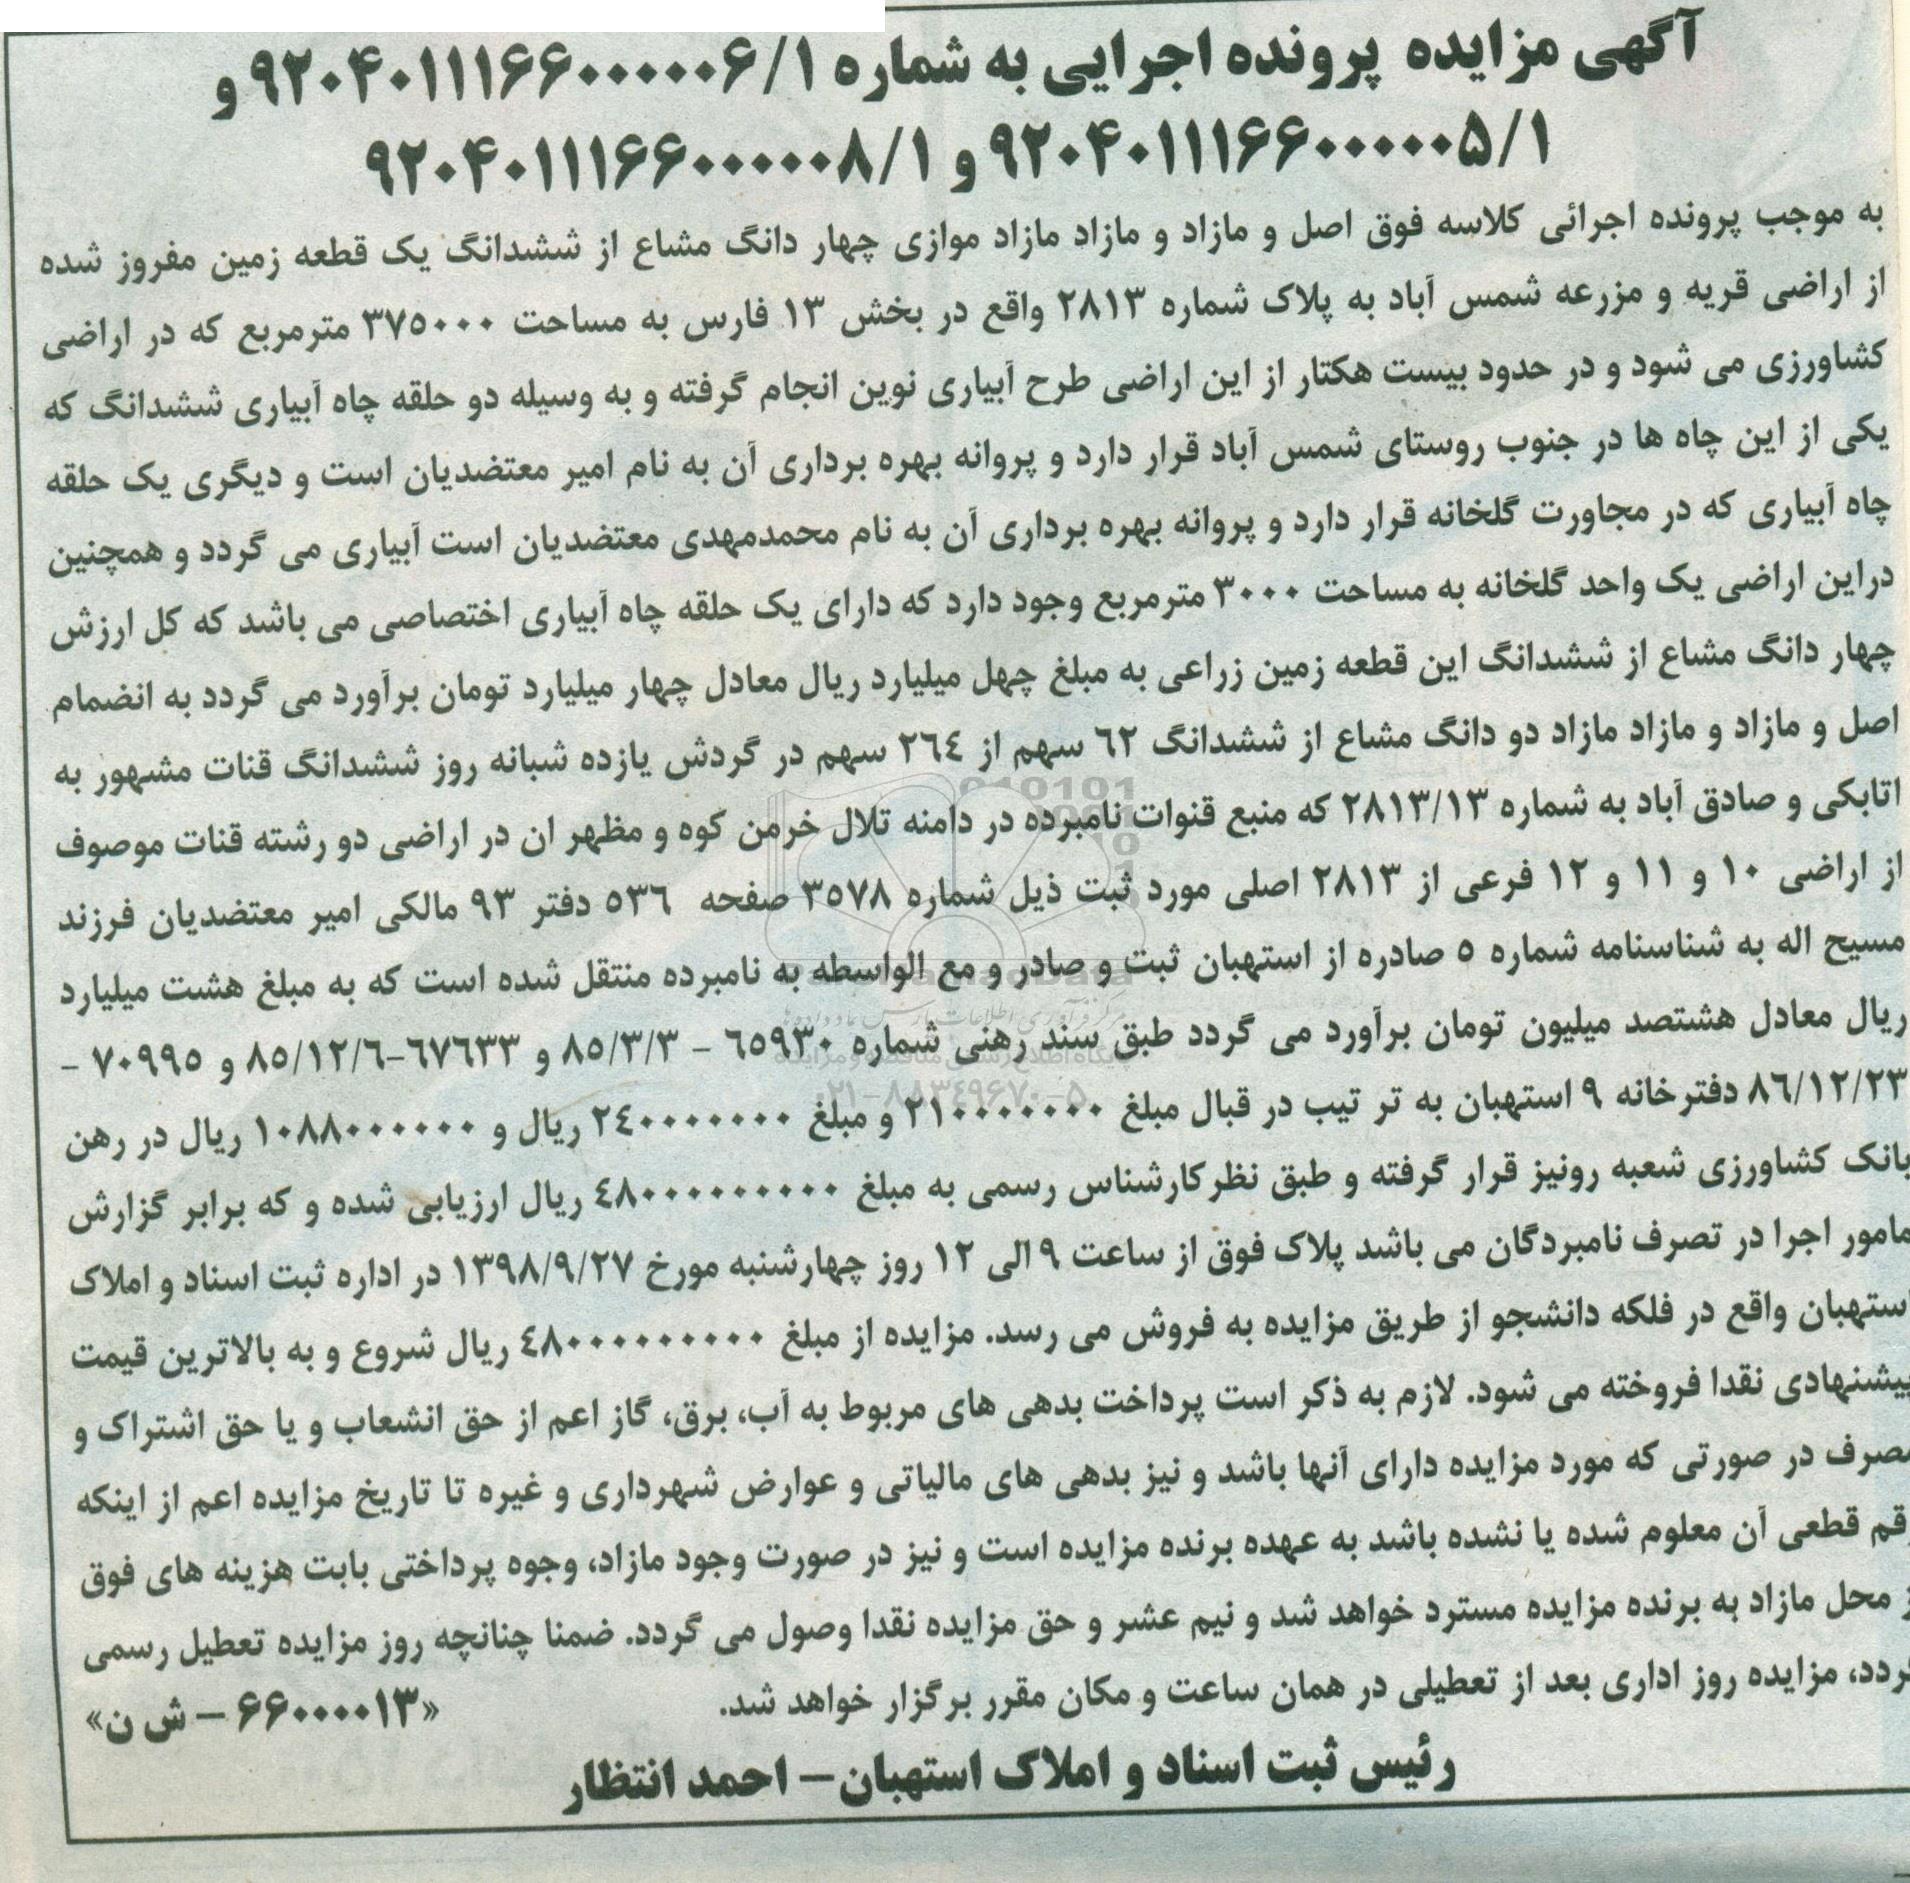 آگهی مزایده پرونده اجرایی به شماره ۹۲۰۴۰۱۱۱۶۶۰۰۰۰۰۶/۱ و
۹۲۰۴۰۱۱۱۶۶۰۰۰۰۰۵/۱ و ۹۲۰۴۰۱۱۱۶۶۰۰۰۰۰۸/۱
به موجب پرونده اجرائی کلاسه فوق اصل و مازاد و مازاد مازاد موازی چهار دانگ مشاع از ششدانگ یک قطعه زمین مفروز شده
از اراضی قریه و مزرعه شمس آباد به پلاک شماره ۲۸۱۳ واقع در بخش ۱۳ فارس به مساحت ۳۷۵۰۰۰ مترمربع که در اراضی
کشاورزی می شود و در حدود بیست هکتار از این اراضی طرح آبیاری نوین انجام گرفته و به وسیله دو حلقه چاه آبیاری ششدانگ که
یکی از این چاه ها در جنوب روستای شمس آباد قرار دارد و پروانه بهره برداری آن به نام امیر معتضدیان است و دیگری یک حلقه
چاه آبیاری که در مجاورت گلخانه قرار دارد و پروانه بهره برداری آن به نام محمدمهدی معتضدیان است آبیاری می گردد و همچنین
دراین اراضی یک واحد گلخانه به مساحت ۳۰۰۰ مترمربع وجود دارد که دارای یک حلقه چاه آبیاری اختصاصی می باشد که کل ارزش
چهار دانگ مشاع از ششدانگ این قطعه زمین زراعی به مبلغ چهل میلیارد ریال معادل چهار میلیارد تومان برآورد می گردد به انضمام
اصل و مازاد و مازاد مازاد دو دانگ مشاع از ششدانگ ٦٢ سهم از ٢٦٤ سهم در گردش یازده شبانه روز ششدانگ قنات مشهور به
اتابکی و صادق آباد به شماره ۲۸۱۳/۱۳ که منبع قنوات نامبرده در دامنه تلال خرمن کوه و مظهر ان در اراضی دو رشته قنات موصوف
از اراضی ۱۰ و ۱۱ و ۱۲ فرعی از ۲۸۱۳ اصلی مورد ثبت ذیل شماره ۳۵۷۸ صفحه ٥٣٦ دفتر ۹۳ مالکی امیر معتضدیان فرزند
مسیح اله به شناسنامه شماره ٥ صادره از استهبان ثبت و صادر و مع الواسطه به نامبرده منتقل شده است که به مبلغ هشت میلیارد
ریال معادل هشتصد میلیون تومان برآورد می گردد طبق سند رهنی شماره ٦٥٩٣٠ - ٨٥/٣/٣ و ٦٧٦٣٣-٨٥/١٢/٦ و ٧٠٩٩٥ -
٨٦/١٢/٢٣ دفترخانه ۹ استهبان به تر تیب در قبال مبلغ ۲۱۰۰۰۰۰۰۰ و مبلغ ٢٤٠٠٠٠٠٠٠ ریال و ۱۰۸۸۰۰۰۰۰۰ ریال در رهن
بانک کشاورزی شعبه رونیز قرار گرفته و طبق نظرکارشناس رسمی به مبلغ ٤٨٠٠٠٠٠٠٠٠٠ ریال ارزیابی شده و که برابر گزارش
مامور اجرا در تصرف نامبردگان می باشد پلاک فوق از ساعت ۹ الی ۱۲ روز چهارشنبه مورخ ۱۳۹۸/۹/۲۷ در اداره ثبت اسناد و املاک
استهبان واقع در فلکه دانشجو از طریق مزایده به فروش می رسد. مزایده از مبلغ ٤٨٠٠٠٠٠٠٠٠٠ ریال شروع و به بالاترین قیمت
پیشنهادی نقدا فروخته می شود. لازم به ذکر است پرداخت بدهی های مربوط به آب، برق، گاز اعم از حق انشعاب و یا حق اشتراک و
مصرف در صورتی که مورد مزایده دارای آنها باشد و نیز بدهی های مالیاتی و عوارض شهرداری و غیره تا تاریخ مزایده اعم از اینکه
رقم قطعی آن معلوم شده یا نشده باشد به عهده برنده مزایده است و نیز در صورت وجود مازاد، وجوه پرداختی بابت هزینه های فوق
از محل مازاد به برنده مزایده مسترد خواهد شد و نیم عشر و حق مزایده نقدا وصول می گردد. ضمنا چنانچه روز مزایده تعطیل رسمی
گردد، مزایده روز اداری بعد از تعطیلی در همان ساعت و مکان مقرر برگزار خواهد شد. «۶۶۰۰۰۰۱۳ – ش ن»
رئیس ثبت اسناد و املاک استهبان– احمد انتظار